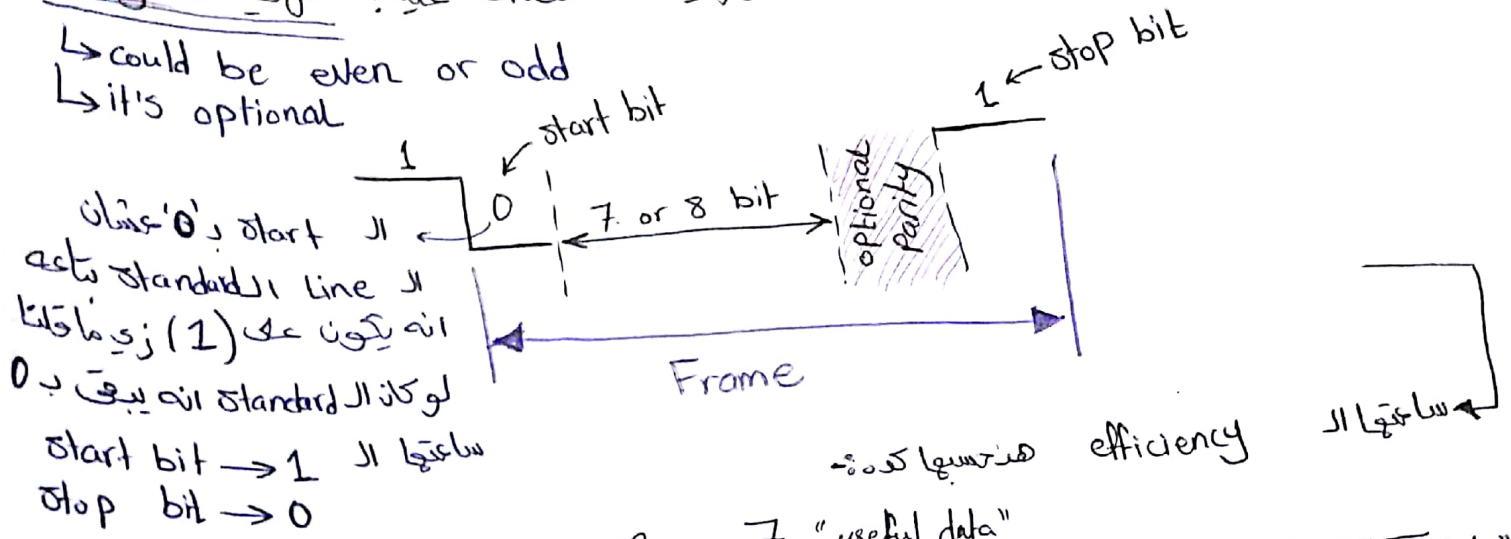 ↳ could be even or odd
↳ it's optional
1 ← stop bit
start bit
1
0
7 or 8 bit
optional parity
ال start ب '0' عشان
ال Line ال standard بتاعه
انه يكون على (1) زي ما قلنا
لو كان ال standard انه يبقى ب 0
ساعتها ال start bit → 1
stop bit → 0
Frame
ساعتها ال efficiency هنحسبها كده :-
7 "useful data"